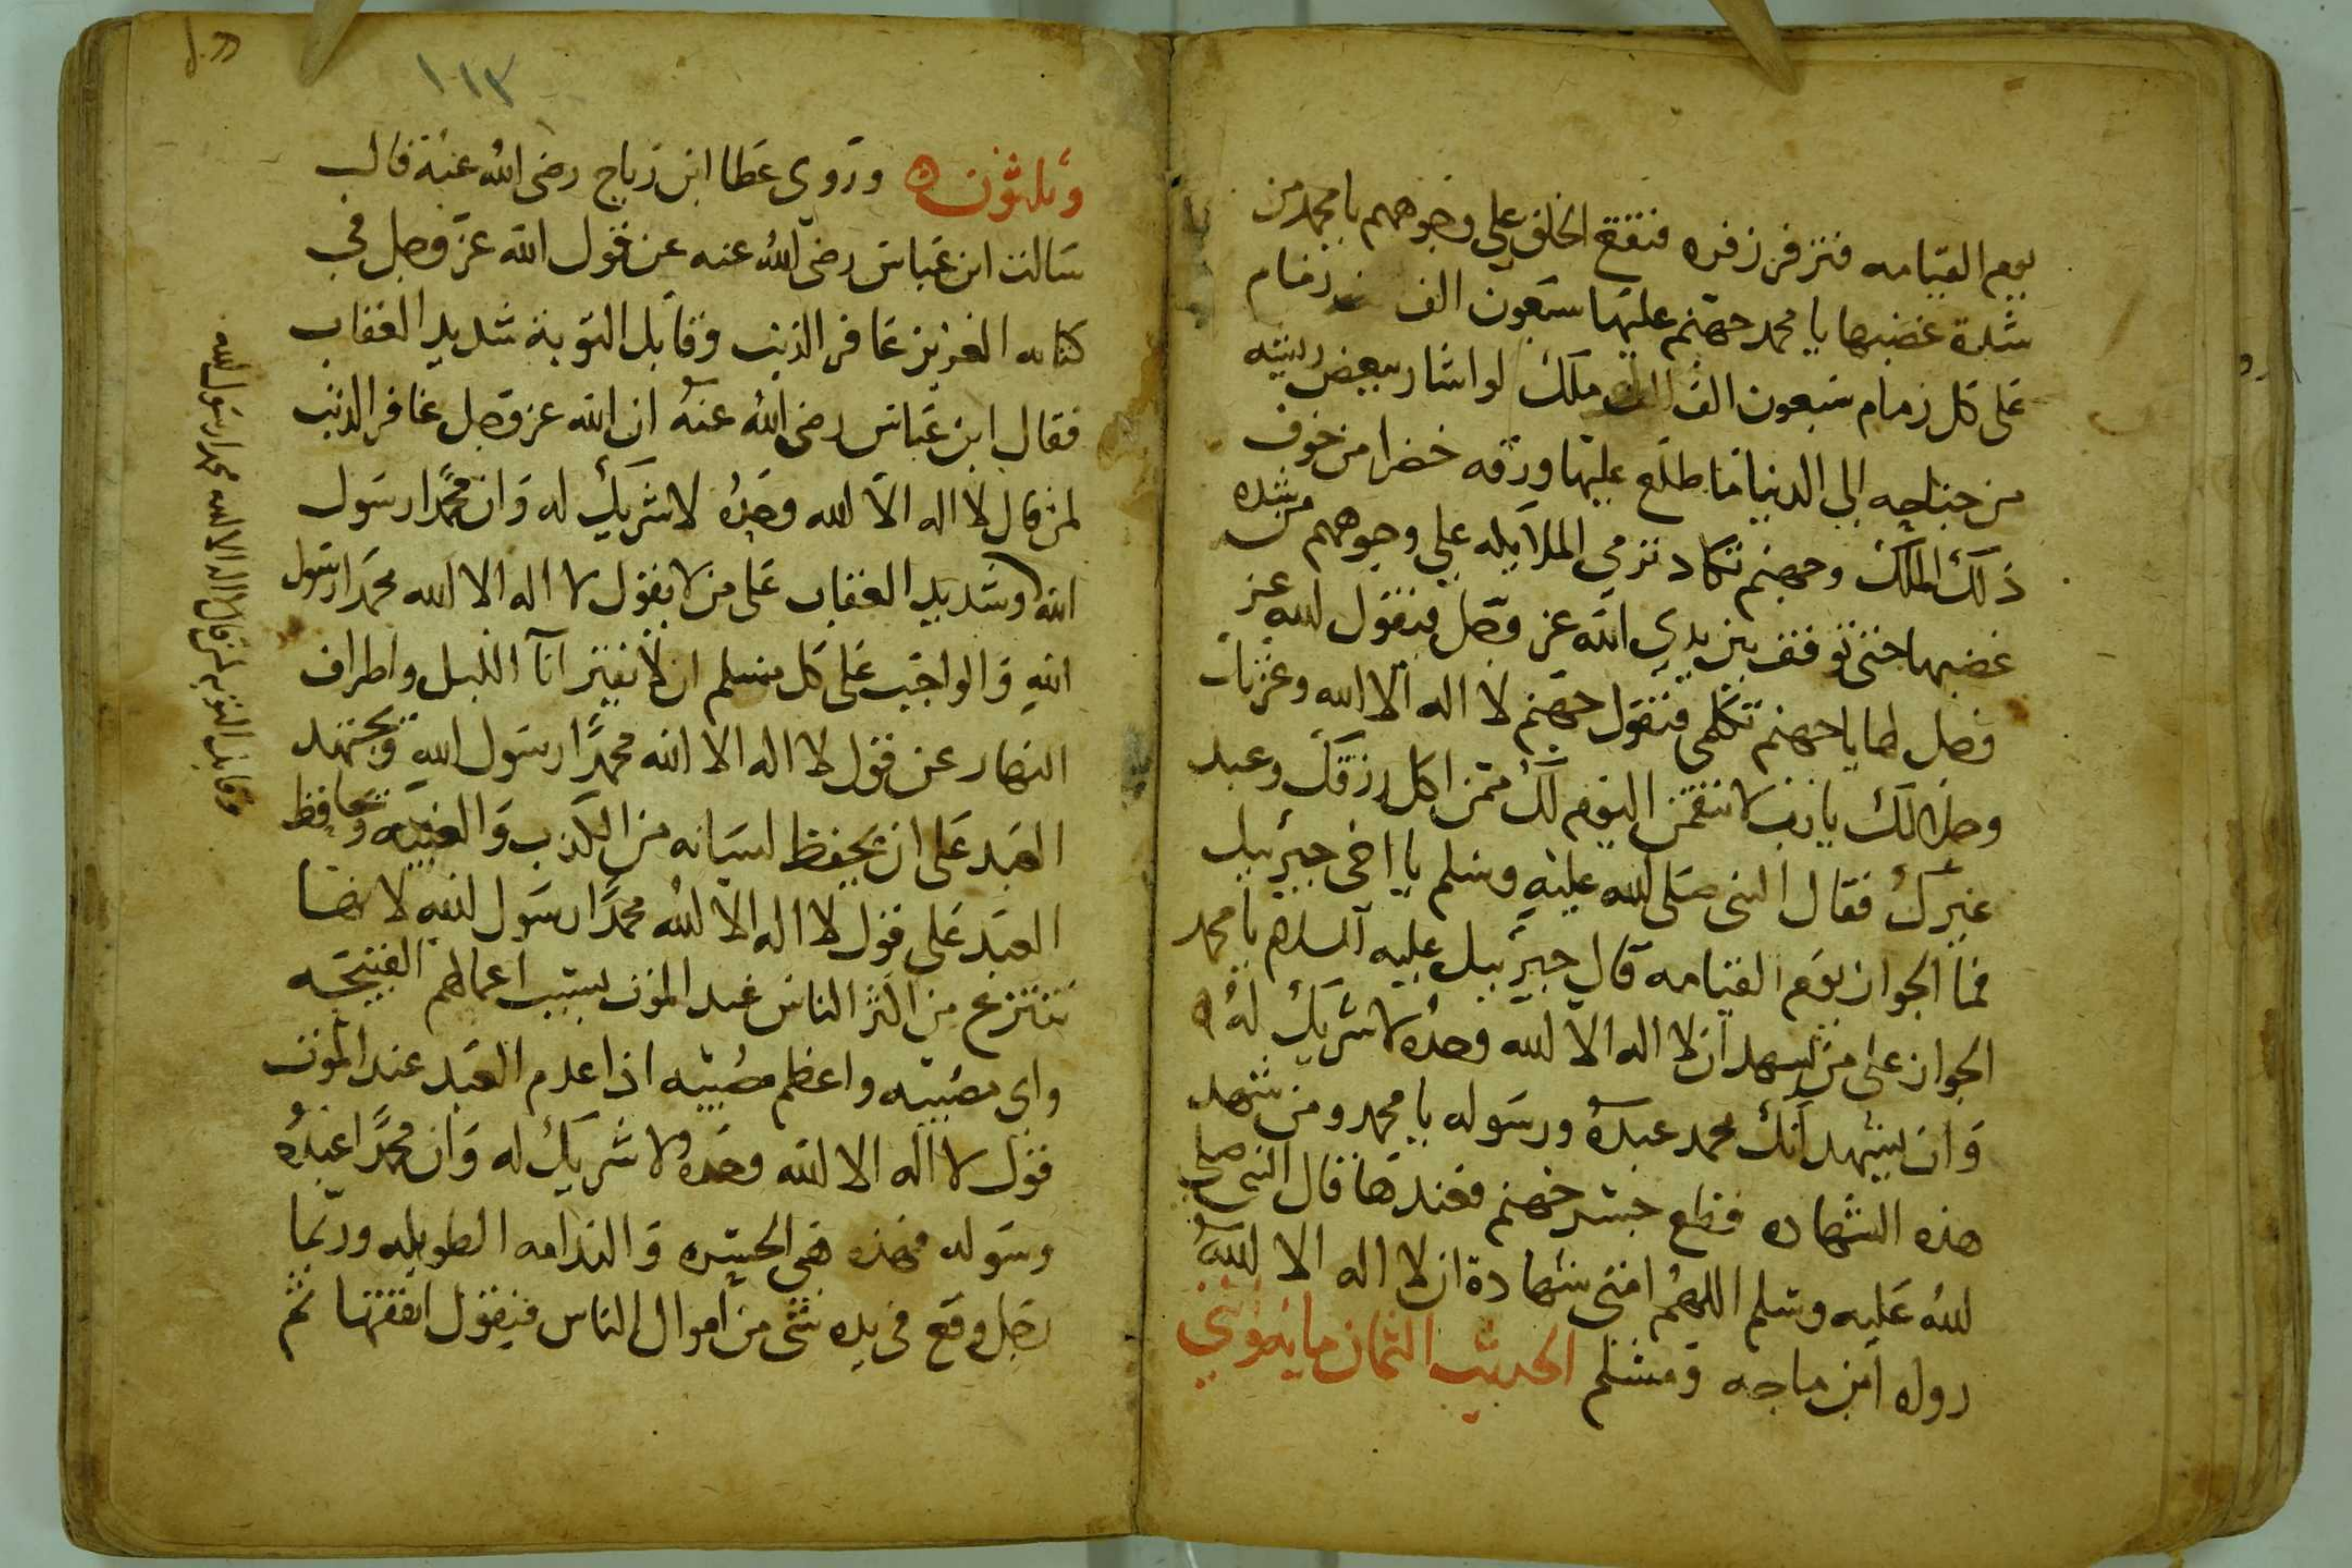 يوم القيامه فتزفر زفره فتقع الخلق علي وجوههم يا محمد من
شدة غضبها يا محمد جهنم عليها سبعون الف زمام
على كل زمام سبعون الف الف ملك لو اشار ببعض ريشه
من جناحه الي الدنيا ما طلع عليها ورقه خضرا من خوف
ذلك الملك وجهنم تكاد ترمي الملايكه علي وجوههم من شده
غضبها حتى توقف بين يدي الله عز وجل فيقول الله عز
وجل لها يا جهنم تكلمي فتقول جهنم لا اله الا الله وعزتك
وجلالك يا رب لا نتقمن اليوم لك ممن اكل رزقك وعبد
غيرك فقال النبى صلى الله عليه وسلم يا اخى جبرئيل
فما الجواز يوم القيامه قال جبرئيل عليه السلام يا محمد
الجواز على من يشهد ان لا اله الا الله وحده لا شريك له
وان يشهد انك محمد عبده ورسوله يا محمد ومن شهد
هذه الشهاده قطع جسر جهنم فعندها قال النبى صلى
الله عليه وسلم اللهم امتى شهادة ان لا اله الا الله
رواه ابن ماجه ومسلم الحديث الثمان ما
١١٣
وثلثون وروى عطا ابن رباح رضى الله عنه قال
سالت ابن عباس رضى الله عنه عن قول الله عز وجل في
كتابه العزيز غافر الذنب وقابل التوبة شديد العقاب
فقال ابن عباس رضى الله عنه ان الله عز وجل غافر الذنب
لمن قال لا اله الا الله وحده لا شريك له وان محمدا رسول
الله وشديد العقاب على من لا يقول لا اله الا الله محمدا رسول
الله والواجب على كل مسلم ان لا يفتر انآ الليل واطراف
النهار عن قول لا اله الا الله محمدا رسول الله ويجتهد
العبد على ان يحفظ لسانه من الكذب والغيبه ويحافظ
العبد على قول لا اله الا الله محمدا رسول الله لانها
تنتزع من اكثر الناس عند الموت بسبب اعمالهم القبيحه
واى مصيبه واعظم مصيبه اذا عدم العبد عند الموت
قول لا اله الا الله وحده لا شريك له وان محمدا عبده
ورسوله فهذه هى الحسره والندامه الطويله وربما
رجل وقع فى يده شى من اموال الناس فيقول انفقها ثم
وقابل التوبه لمن قال لا اله الا الله محمد رسول الله